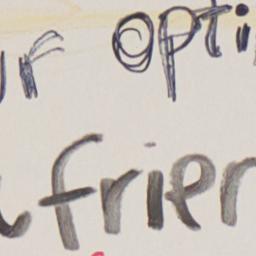 ur opti
frier